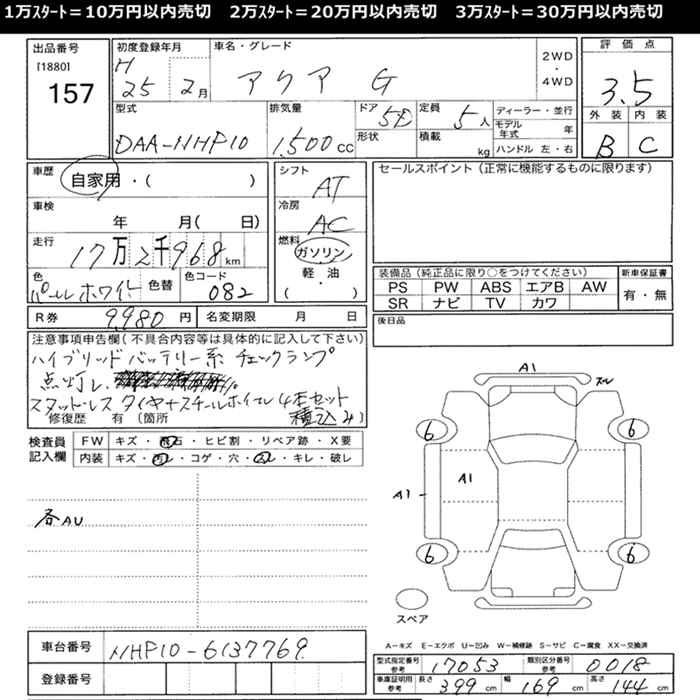 1万ｽﾀｰﾄ＝10万円以内売切　2万ｽﾀｰﾄ＝20万円以内売切　3万ｽﾀｰﾄ＝30万円以内売切
出品番号
[1880]
157
初度登録年月
H
25 2月
車名・グレード
アクア G
2WD
・
4WD
評価点
3.5
外装 内装
B C
型式
DAA-NHP10
排気量
1,500cc
ドア
5D
形状
定員
5人
積載
kg
ディーラー・並行
モデル年式 年
ハンドル 左・右
車歴
自家用・( )
車検
年 月( 日)
走行
17万2千968km
色
パールホワイト
色替
色コード
082
シフト
AT
冷房
AC
燃料
ガソリン
軽・油
( )
セールスポイント（正常に機能するものに限ります）
装備品（純正品に限り○をつけてください）
PS PW ABS エアB AW
SR ナビ TV カワ
新車保証書
有・無
R券 9,980円
名変期限 月 日
後日品
注意事項申告欄(不具合内容等は具体的に記入して下さい)
ハイブリッドバッテリー系 チェックランプ
点灯し
スタットレス タイヤ+スチールホイール 4本セット
積込み
修復歴 有(箇所
検査員
記入欄
FW キズ・飛石・ヒビ割・リペア跡・X要
内装 キズ・汚レ・コゲ・穴・スレ・キレ・破レ
各AU
A1
スレ
6 6
A1 A1
6 6
スペア
A－キズ E－エクボ U－凹み W－補修跡 S－サビ C－腐食 XX－交換済
車台番号 NHP10-6137769
登録番号
型式指定番号
参考
17053
類別区分番号
参考
0018
車庫証明用
参考
長さ 399cm
幅 169cm
高さ 144cm